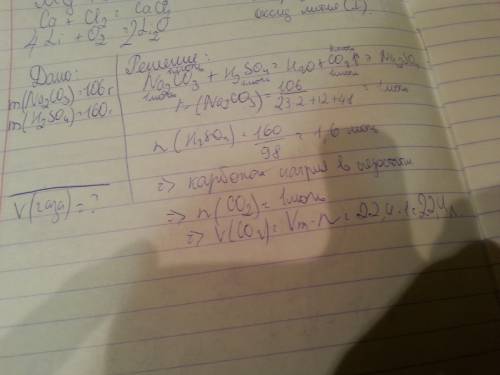 Ca + Cl₂ = CaCl₂
4Li + O₂ = 2Li₂O
оксид лития (I).
Дано:
m(Na₂CO₃) = 106 г
m(H₂SO₄) = 160 г
V(газа) = ?
Решение:
Na₂CO₃ + H₂SO₄ = H₂O + CO₂↑ + Na₂SO₄
n(Na₂CO₃) = 106 / 23·2+12+48 = 1 моль
n(H₂SO₄) = 160 / 98 = 1,6 моль
=> карбонат натрия в недостатке
=> n(CO₂) = 1 моль
=> V(CO₂) = Vm·n = 22,4·1 = 22,4 л.